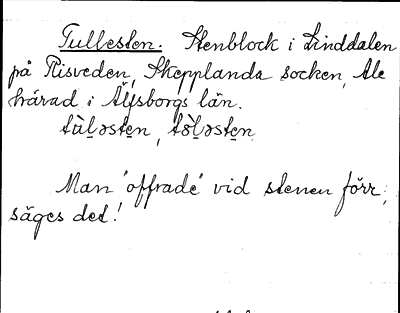 Tullesten. Stenblock i Linddalen
på Risveden, Skepplanda socken, Ale
härad, i Älvsborgs län.
Man 'offrade' vid stenen förr,
säges det!